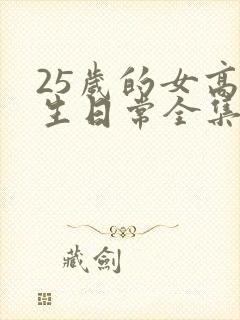 25歲的女高
生日常全集
藏劍